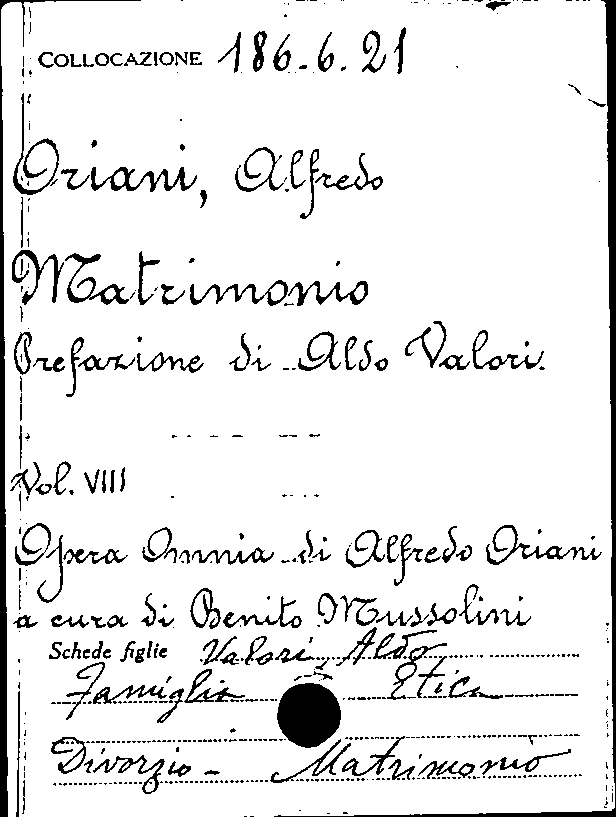 COLLOCAZIONE 186.6.21
Oriani, Alfredo
Matrimonio
Prefazione di Aldo Valori.
Vol. VIII
Opera Omnia di Alfredo Oriani
a cura di Benito Mussolini
Schede figlie Valori, Aldo
Famiglia Etica
Divorzio - Matrimonio